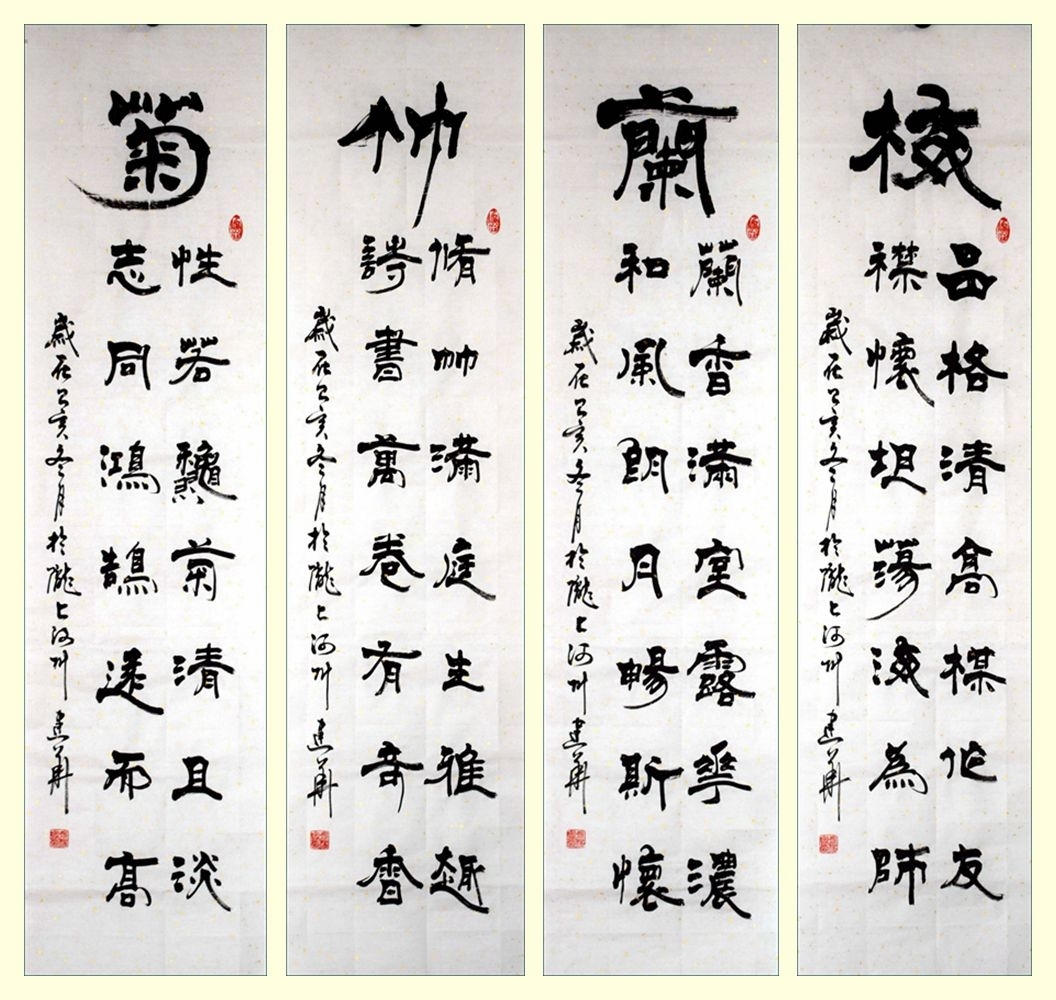 梅
品格清高楳作友
襟懷坦蕩海為師
歲在己亥冬月於隴上河州 建華
蘭
蘭香滿堂露華濃
和風朗月暢斯懷
歲在己亥冬月於隴上河州 建華
竹
脩竹滿庭生雅趣
詩書萬卷有奇香
歲在己亥冬月於隴上河州 建華
菊
性若龝菊清且淡
志同鴻鵠遠而高
歲在己亥冬月於隴上河州 建華